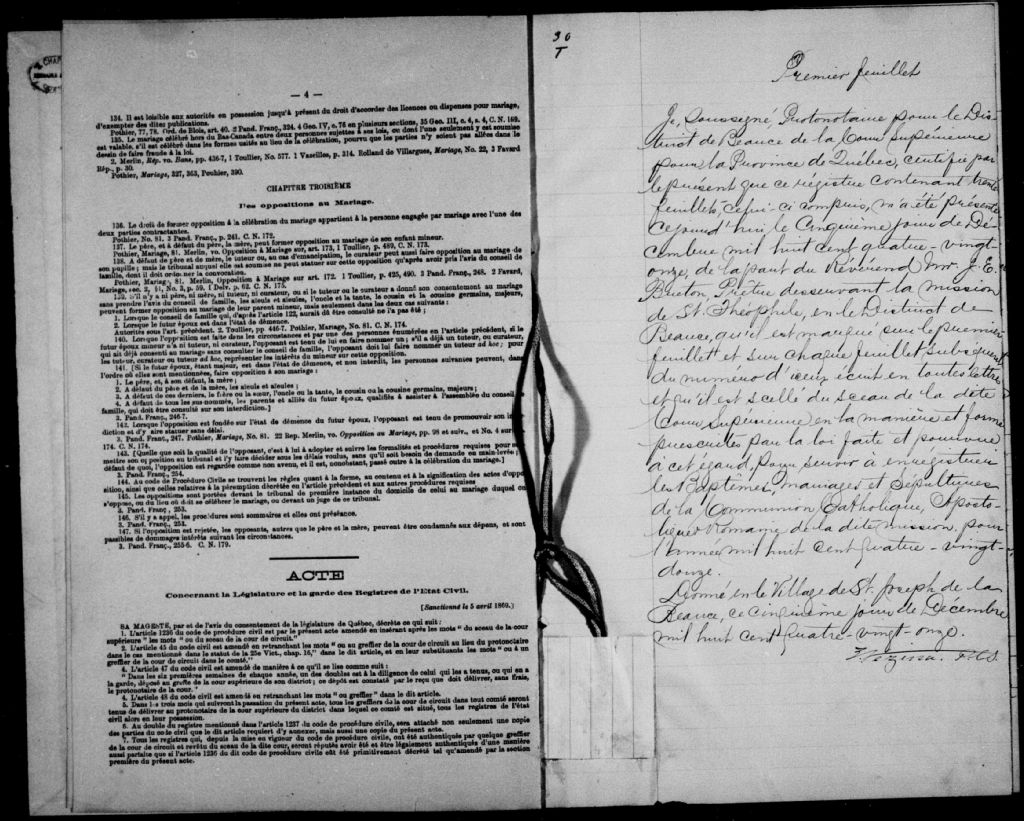 — 4 —
134. Il est loisible aux autorités en possession jusqu'à présent du droit d'accorder des licences ou dispenses pour mariage,
d'exempter des dites publications.
Pothier, 77, 78. Ord. de Blois, art. 40. 3 Pand. Franç., 324. 4 Geo. IV, c. 76 en plusieurs sections, 35 Geo. III, c. 4, s. 4, C. N. 169.
135. Le mariage célébré hors du Bas-Canada entre deux personnes sujettes à ses lois, ou dont l'une seulement y est soumise
est valable, s'il est célébré dans les formes usitées au lieu de la célébration, pourvu que les parties n'y soient pas allées dans le
dessin de faire fraude à la loi.
2. Merlin, Rép. vo. Bans, pp. 436-7, 1 Toullier, No. 577. 1 Vazeilles, p. 314. Rolland de Villargues, Mariage, No. 22, 3 Favard
Rép., p. 30.
Pothier, Mariage, 327, 363, Pouhier, 390.
CHAPITRE TROISIÈME
Des oppositions au Mariage.
136. Le droit de former opposition à la célébration du mariage appartient à la personne engagée par mariage avec l'une des
deux parties contractantes.
Pothier, No. 81. 3 Pand. Franç., p. 241. C. N. 172.
137. Le père, et à défaut du père, la mère, peut former opposition au mariage de son enfant mineur.
Pothier, Mariage, 81. Merlin, vo. Opposition à Mariage, sur art. 173, 1 Toullier, p. 489, C. N. 173.
138. A défaut de père et de mère, le tuteur ou, au cas d'émancipation, le curateur peut aussi faire opposition au mariage de
son pupille ; mais le tribunal auquel elle est soumise ne peut statuer sur cette opposition qu'après avoir pris l'avis du conseil de
famille, dont il doit ordonner la convocation.
Pothier, Mariage, 81. Merlin, Opposition à Mariage sur art. 172. 1 Toullier, p. 425, 490. 3 Pand. Franç., 248. 2 Favard,
Mariage, sec. 2, §1, No. 3, p. 59. 1 Delv. p. 62. C. N. 175.
139. S'il n'y a ni père, ni mère, ni tuteur, ni curateur, ou si le tuteur ou le curateur a donné son consentement au mariage
sans prendre l'avis du conseil de famille, les aïeuls et aïeules, l'oncle et la tante, le cousin et la cousine germains, majeurs,
peuvent former opposition au mariage de leur parent mineur, mais seulement dans les deux cas suivants :
1. Lorsque le conseil de famille qui, d'après l'article 122, aurait dû être consulté ne l'a pas été ;
2. Lorsque le futur époux est dans l'état de démence.
Autorités sous l'art. précédent. 2. Toullier, pp. 446-7. Pothier, Mariage, No. 81. C. N. 174.
140. Lorsque l'opposition est faite dans les circonstances et par une des personnes énumérées en l'article précédent, si le
futur époux mineur n'a ni tuteur, ni curateur, l'opposant est tenu de lui en faire nommer un ; s'il a déjà un tuteur, ou curateur,
qui ait déjà consenti au mariage sans consulter le conseil de famille, l'opposant doit lui faire nommer un tuteur ad hoc ; pour
les tuteur, curateur ou tuteur ad hoc, représenter les intérêts du mineur sur cette opposition.
141. [Si le futur époux, étant majeur, est dans l'état de démence, et non interdit, les personnes suivantes peuvent, dans
l'ordre où elles sont mentionnées, faire opposition à son mariage :
1. Le père, et, à son défaut, la mère ;
2. A défaut du père et de la mère, les aïeuls et aïeules ;
3. A défaut de ces derniers, le frère ou la sœur, l'oncle ou la tante, le cousin ou la cousine germains, majeurs ;
4. A défaut de tous les sus-nommés, les parents et alliés du futur époux, qualifiés à assister à l'assemblée du conseil
famille, qui doit être consulté sur son interdiction.]
3. Pand. Franç., 246-7.
142. Lorsque l'opposition est fondée sur l'état de démence du futur époux, l'opposant est tenu de promouvoir son in
diction et d'y faire statuer sans délai.
3. Pand. Franç., 247. Pothier, Mariage, No. 81. 22 Rep. Merlin, vo. Opposition au Mariage, pp. 28 et suiv., et No. 4 sur
174. C. N. 174.
143. [Quelle que soit la qualité de l'opposant, c'est à lui à adopter et suivre les formalités et procédures requises pour
mettre son opposition au tribunal et l'y faire décider sous les délais voulus, sans qu'il soit besoin de demande en main-levée ;
défaut de quoi, l'opposition est regardée comme non avenu, et il est, nonobstant, passé outre à la célébration du mariage.]
3. Pand. Franç., 254.
144. Au code de Procédure Civile se trouvent les règles quant à la forme, au contenu et à la signification des actes d'oppo
sition, ainsi que celles relatives à la péremption décrétée en l'article précédent et aux autres procédures requises
145. Les oppositions sont portées devant le tribunal de première instance du domicile de celui au mariage duquel on
s'oppose, ou du lieu où doit se célébrer le mariage, ou devant un juge de ce tribunal.
3. Pand. Franç., 253.
146. S'il y a appel, les procédures sont sommaires et elles ont préséance.
3. Pand. Franç., 253.
147. Si l'opposition est rejetée, les opposants, autres que le père et la mère, peuvent être condamnés aux dépens, et sont
passibles de dommages intérêts suivant les circonstances.
3. Pand. Franç., 255-6. C. N. 179.
ACTE
Concernant la Législature et la garde des Registres de l'Etat Civil.
[Sanctionné le 5 avril 1869.]
SA MAGESTE, par et de l'avis du consentement de la législature de Québec, décrète ce qui suit :
1. L'article 1236 du code de procédure civil est par le présent acte amendé en insérant après les mots "du sceau de la cour
supérieure" les mots "ou du sceau de la cour de circuit."
2. L'article 45 du code civil est amendé en retranchant les mots "ou au greffier de la cour de circuit au lieu du protonotaire
dans le cas mentionné dans le statut de la 25e Vict., chap. 16," dans le dit article, et en leur substituants les mots "ou à un
greffier de la cour de circuit dans le comté."
4. L'article 47 du code civil est amendé de manière à ce qu'il se lise comme suit :
"Dans les six premières semaines de chaque année, un des doubles est à la diligence de celui qui les a tenus, ou qui en a
la garde, déposé au greffe de la cour supérieure de son district ; ce dépôt est constaté par le reçu que doit délivrer, sans frais,
le protonotaire de la cour."
4. L'article 48 du code civil est amendé en retranchant les mots "ou greffier" dans le dit article.
5. Dans les trois mois qui suivront la passation du présent acte, tous les greffiers de la cour de circuit dans tout comté seront
tenus de délivrer au protonotaire de la cour supérieure du district dans lequel ce comté est situé, tous les registres de l'état
civil alors en leur possession.
6. Au double du registre mentionné dans l'article 1237 du code de procédure civile, sera attaché non seulement une copie
des parties du code civil que le dit article requiert d'y annexer, mais aussi une copie du présent acte.
7. Tous les registres qui, depuis la mise en vigueur du code de procédure civile, ont été authentiqués par quelque greffier
de la cour de circuit et revêtu du sceau de la dite cour, seront réputés avoir été et être légalement authentiqués d'une manière
aussi parfaite que si l'article 1236 du dit code de procédure civile eût été primitivement décrété tel qu'amendé par la section
première du présent acte.
30
T
Premier feuillet
Je, soussigné, Protonotaire pour le Dis-
trict de Beauce de la Cour Supérieure
pour la Province de Québec, certifie par
le présent que ce régistre contenant trente
feuillets, celui-ci compris, m'a été présenté
cejourd'hui le Cinquième jour de Dé-
cembre mil huit cent quatre-vingt-
onze, de la part du Révérend Mr J. E.
Breton, Prêtre desservant la mission
de St. Théophile, en le District de
Beauce, qu'il est marqué sur le premier
feuillett et sur chaque feuillet subséquent
du numéro d'iceux écrit en toutes lettre
et qu'il est scellé du sceau de la dite
Cour Supérieure en la manière et forme
prescrites par la loi faite et pourvue
à cet égard, pour servir à enregistrer
les Baptêmes, mariages et Sépultures
de la Communion Catholique, Aposto-
lique & Romaine de la dite mission, pour
l'année mil huit cent quatre-vingt-
douze.
Donné en le Village de St. Joseph de la
Beauce, ce cinquième jour de Décembre
mil huit cent quatre-vingt-onze.
Vézina. P.C.S.